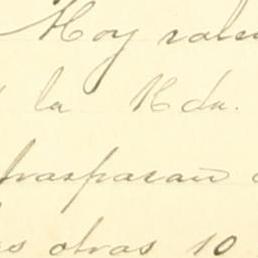 Hoy salen
la Hda.
traspasan
otras 10